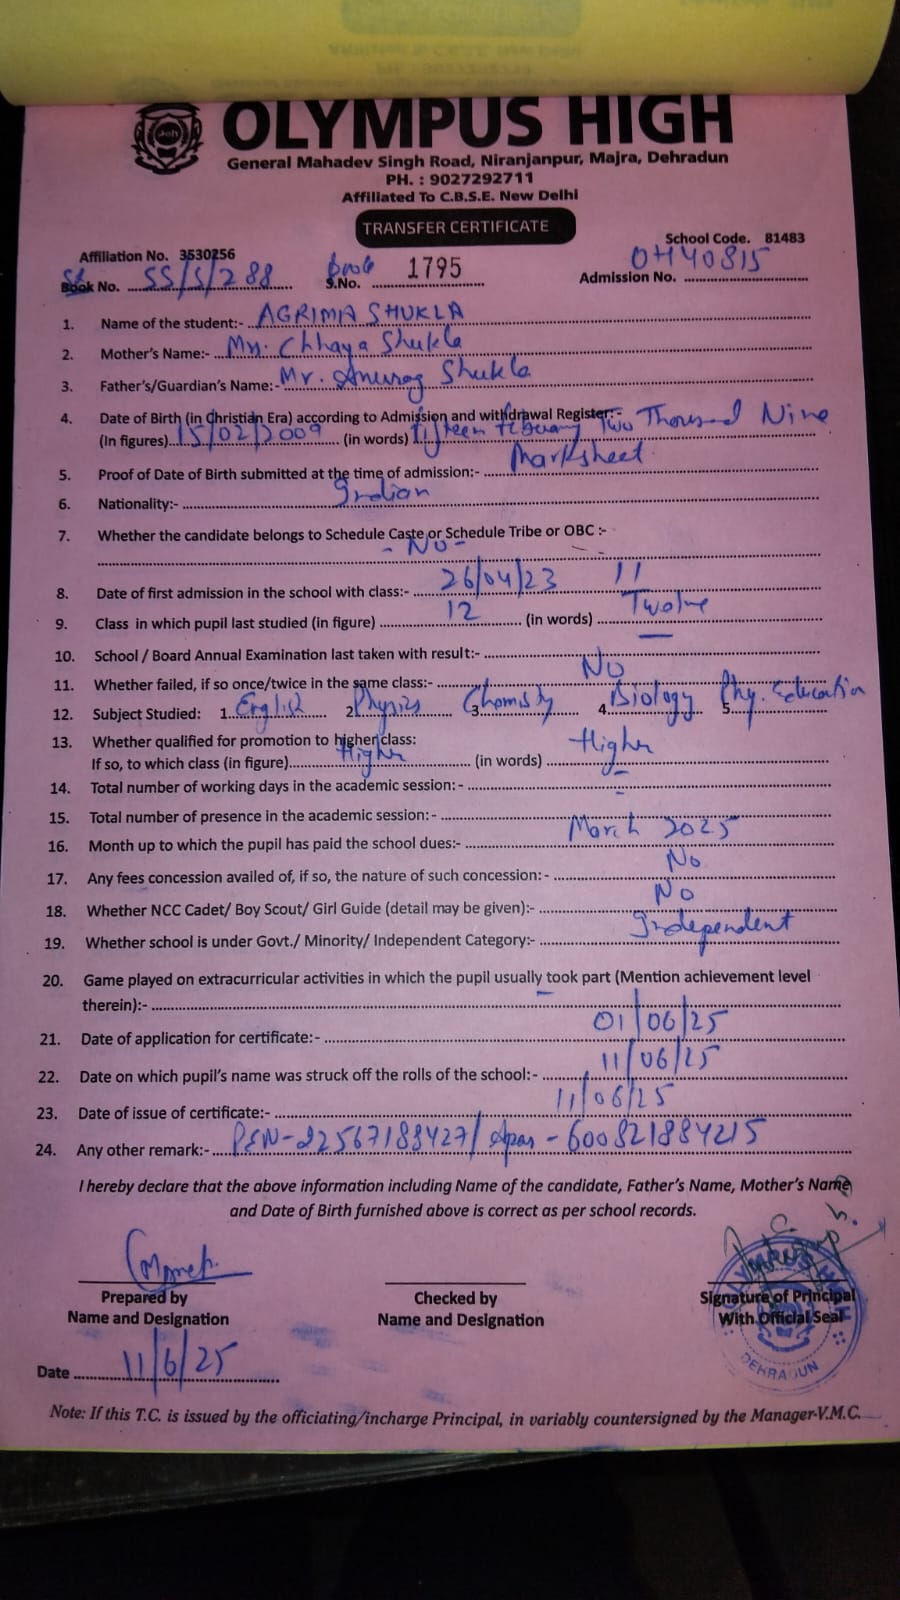 OLYMPUS HIGH
General Mahadev Singh Road, Niranjanpur, Majra, Dehradun
PH. : 9027292711
Affiliated To C.B.S.E. New Delhi
TRANSFER CERTIFICATE
Affiliation No. 3530256 School Code. 81483
Book No. SS/S/288 Book S.No. 1795 Admission No. OH40815
1. Name of the student:- AGRIMA SHUKLA
2. Mother's Name:- Mrs. Chhaya Shukla
3. Father's/Guardian's Name:- Mr. Anurag Shukla
4. Date of Birth (in Christian Era) according to Admission and withdrawal Register:-
(In figures) 15/02/2009 (in words) Fifteen February Two Thousand Nine
5. Proof of Date of Birth submitted at the time of admission:- Marksheet
6. Nationality:- Indian
7. Whether the candidate belongs to Schedule Caste or Schedule Tribe or OBC :-
- No -
8. Date of first admission in the school with class:- 26/04/23 11
9. Class in which pupil last studied (in figure) 12 (in words) Twolve
10. School / Board Annual Examination last taken with result:- —
11. Whether failed, if so once/twice in the same class:- No
12. Subject Studied: 1. English 2. Physics 3. Chemisty 4. Biology 5. Phy. Education
13. Whether qualified for promotion to higher class:
If so, to which class (in figure) Higher (in words) Higher
14. Total number of working days in the academic session:- –
15. Total number of presence in the academic session:- –
16. Month up to which the pupil has paid the school dues:- March 2025
17. Any fees concession availed of, if so, the nature of such concession:- No
18. Whether NCC Cadet/ Boy Scout/ Girl Guide (detail may be given):- No
19. Whether school is under Govt./ Minority/ Independent Category:- Independent
20. Game played on extracurricular activities in which the pupil usually took part (Mention achievement level
therein):- –
21. Date of application for certificate:- 01/06/25
22. Date on which pupil's name was struck off the rolls of the school:- 11/06/25
23. Date of issue of certificate:- 11/06/25
24. Any other remark:- PEN-22567183427/ Apar - 600821884215
I hereby declare that the above information including Name of the candidate, Father's Name, Mother's Name
and Date of Birth furnished above is correct as per school records.
Prepared by Checked by Signature of Principal
Name and Designation Name and Designation With Official Seal
OLYMPUS HIGH DEHRADUN
Date 11/6/25
Note: If this T.C. is issued by the officiating/incharge Principal, in variably countersigned by the Manager-V.M.C.